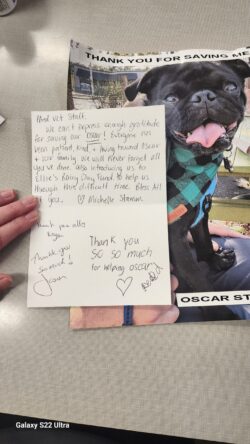 THANK YOU FOR SAVING ME
Vet Staff.
We can't express enough gratitude
for saving our Oscar! Everyone has
been patient, kind + loving toward Oscar
+ our family. We will never forget all
you've done. Also introducing us to
Ellie's Rainy Day Fund to help us
through that difficult time. Bless all
of you. ♡ Michelle
Thank you
Thank you
so much
Thank you
so so much
for helping oscar
♡
OSCAR ST
Galaxy S22 Ultra